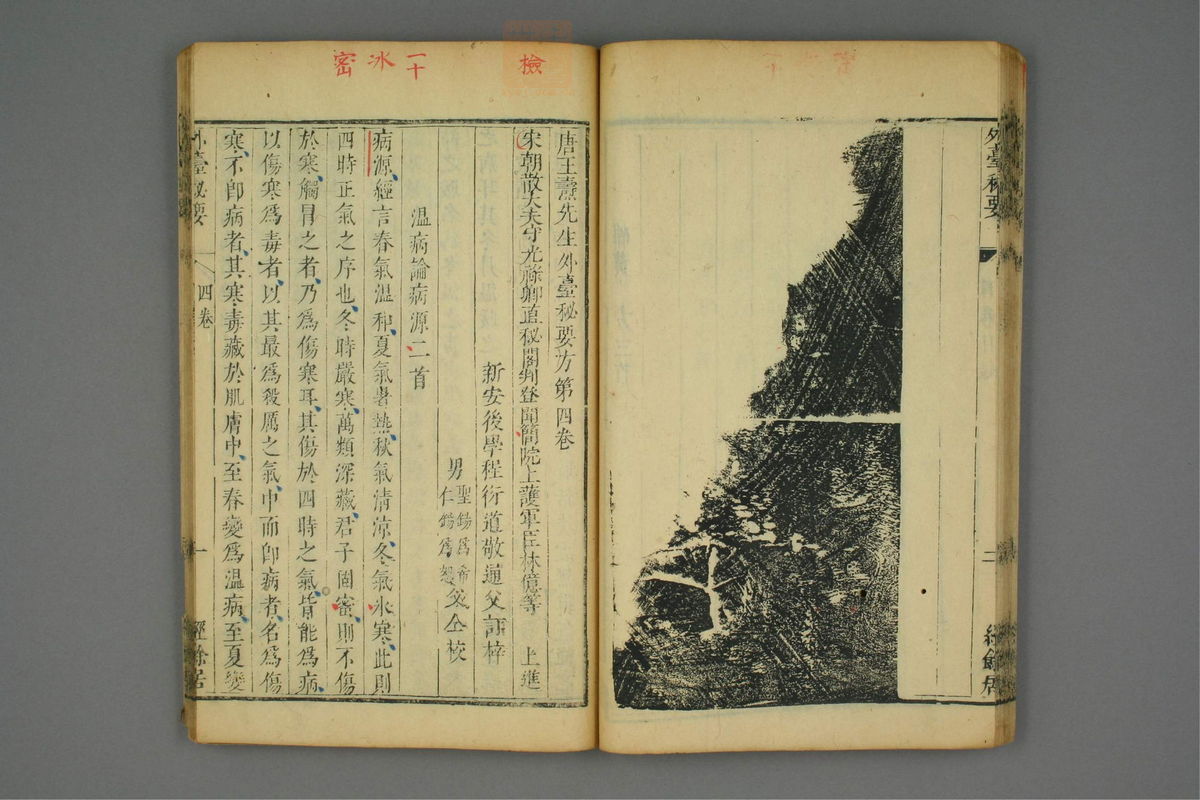 外臺秘要
二
經餘居
檢
一十
冰
密
唐王燾先生外臺秘要方第四卷
宋朝散大夫守光祿卿直秘閣判登聞簡院上護軍臣林億等 上進
新安後學程衍道敬通父訂梓
男聖錫為希
仁錫為恕父仝校
溫病論病源二首
病源經言春氣溫和夏氣暑熱秋氣清涼冬氣氷寒此則
四時正氣之序也冬時嚴寒萬類深藏君子固密則不傷
於寒觸冒之者乃爲傷寒耳其傷於四時之氣皆能爲病
以傷寒爲毒者以其最爲殺厲之氣中而卽病者名爲傷
寒不卽病者其寒毒藏於肌膚中至春變爲溫病至夏變
外臺秘要
四卷
一
經餘居